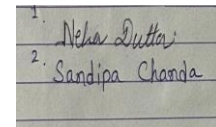 1. Neha Dutta
2. Sandipa Chanda